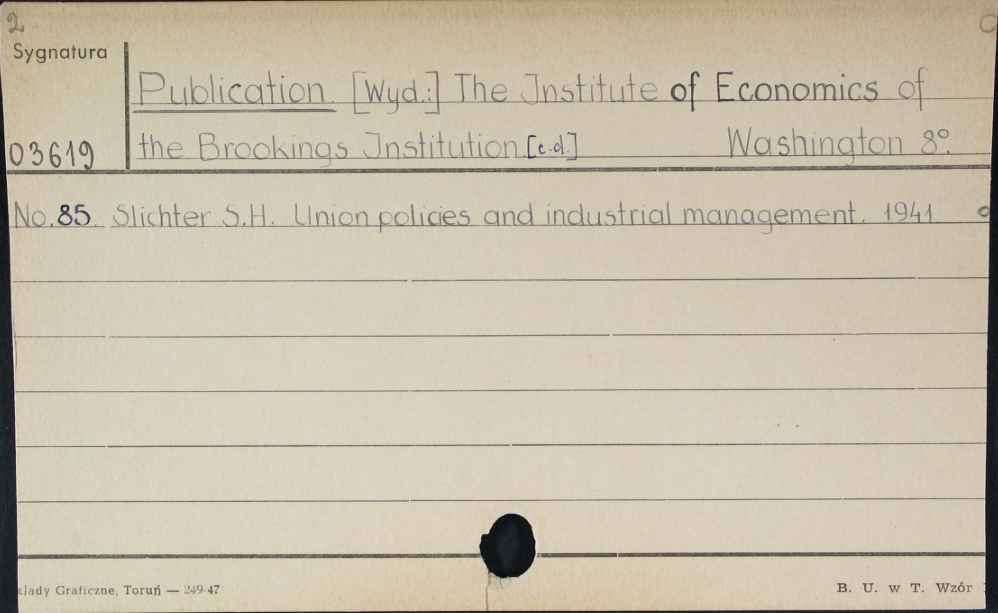 2
Sygnatura
Publication [Wyd.:] The Institute of Economics of
03619 the Brookings Institution [c.d.] Washington 8°.
No. 85. Slichter S.H. Union policies and industrial management. 1941
łady Graficzne, Toruń — 249-47 B. U. w T. Wzór